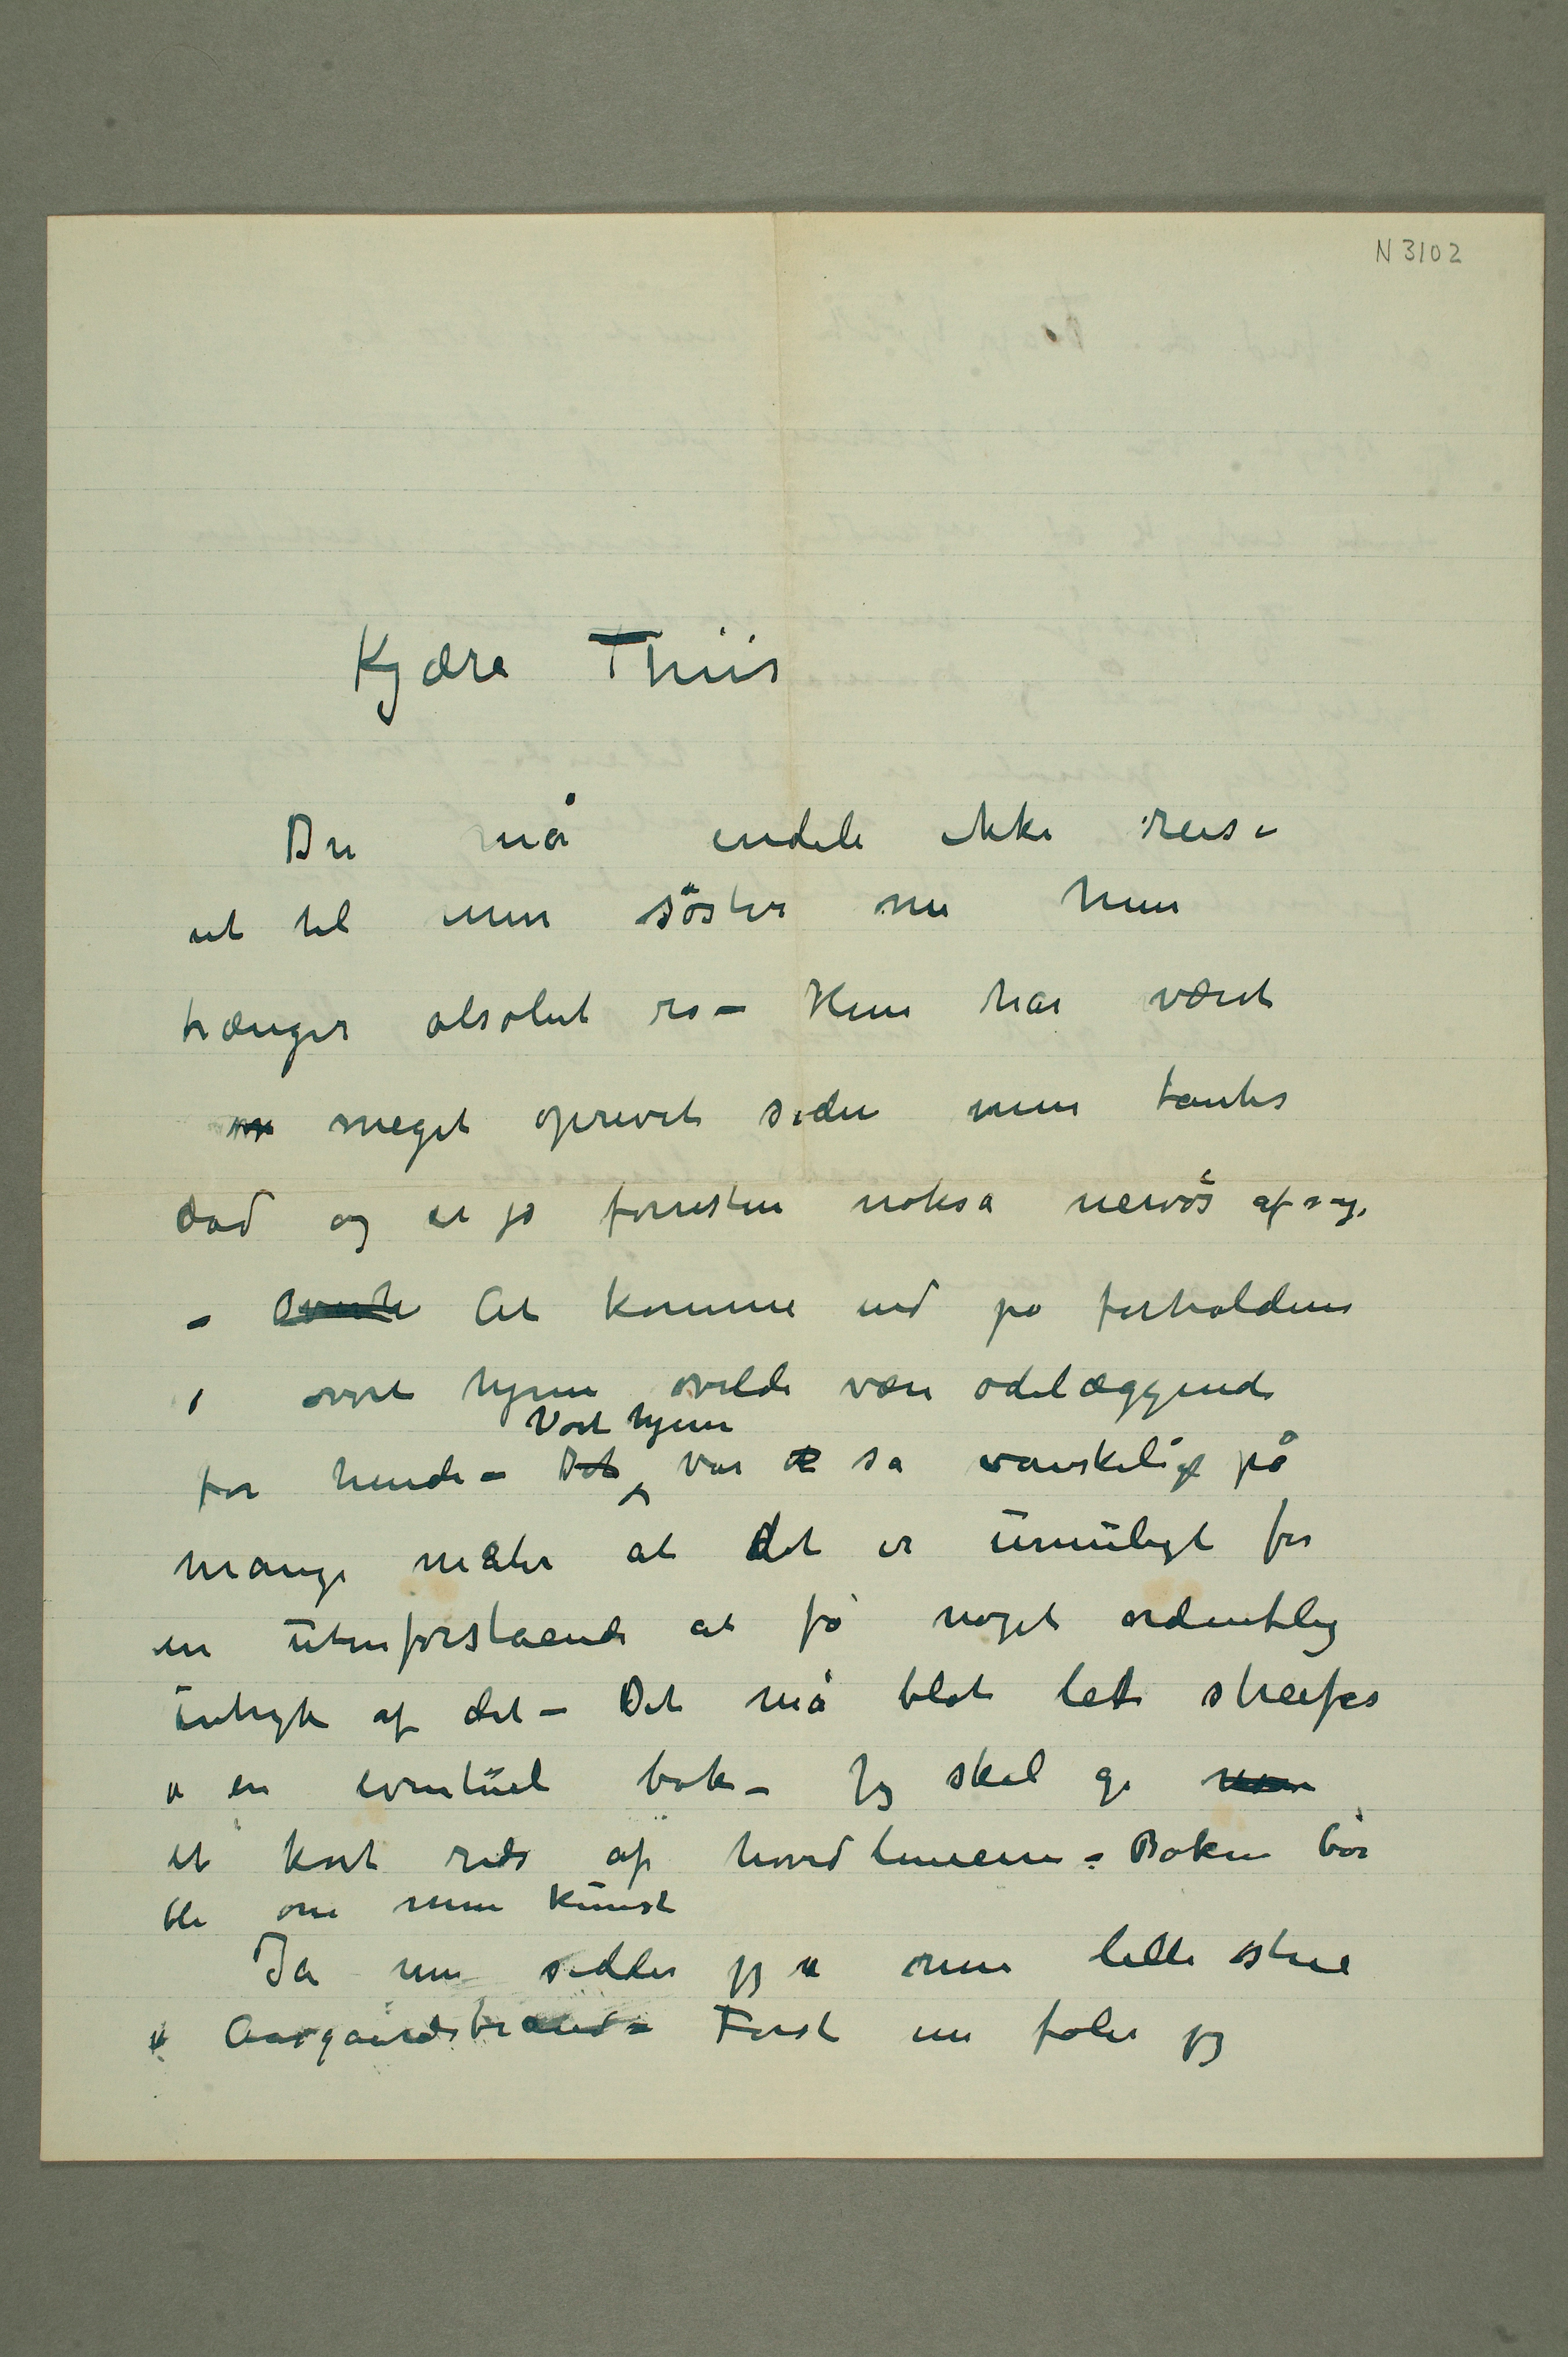 N 3102
Kjære Thiis
Du må endeli ikke reise
ut til min söster nu hun
trænger absolut ro – Hun har været
meget oprevet siden min tantes
död og er jo forresten noksa nervös af sig
– At komme ind på forholdene
i vort hjem vilde være ödelæggende
Vort hjem
for hende – Det var så vanskelig på
mange måter at det er umuligt for
en utenforstående at få noget ordentlig
intryk af det – Det må blot let streifes
i en eventuel bok – Jeg skal gi
et kort rids af hovedlinierne – Boken bör
bli om min kunst
Ja nu sidder jeg i min lille stue
i Aasgaardsstrand – Först nu föler jeg